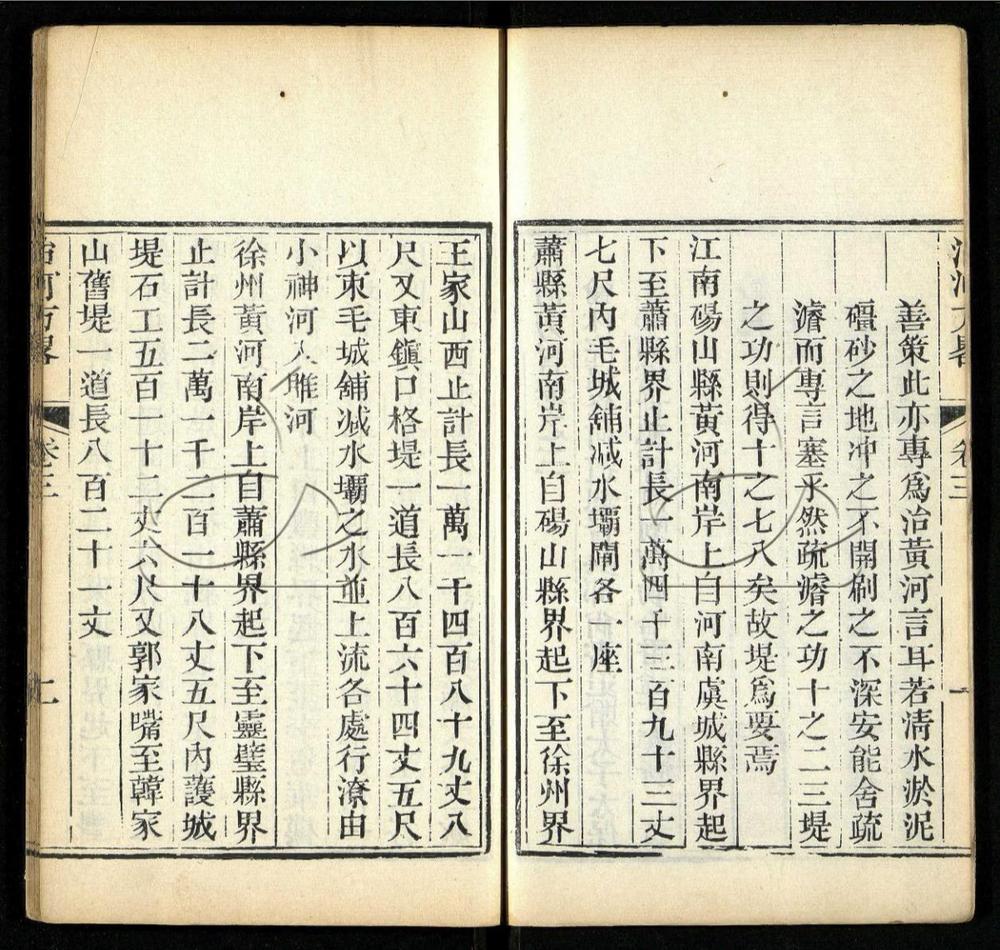 治河方畧 卷三 一
善策此亦專爲治黃河言耳若淸水淤泥
礓砂之地冲之不開刷之不深安能舍疏
濬而專言塞乎然疏濬之功十之二三堤
之功則得十之七八矣故堤爲要焉
江南碭山縣黃河南岸上自河南虞城縣界起
下至蕭縣界止計長一萬四千三百九十三丈
七尺內毛城舖減水壩閘各一座
蕭縣黃河南岸上自碭山縣界起下至徐州界
王家山西止計長一萬一千四百八十九丈八
尺又東鎭口格堤一道長八百六十四丈五尺
以束毛城舖減水壩之水並上流各處行潦由
小神河入睢河
徐州黃河南岸上自蕭縣界起下至靈璧縣界
止計長二萬一千二百一十八丈五尺內護城
堤石工五百一十二丈六尺又郭家嘴至韓家
山舊堤一道長八百二十一丈
治河方畧 卷三